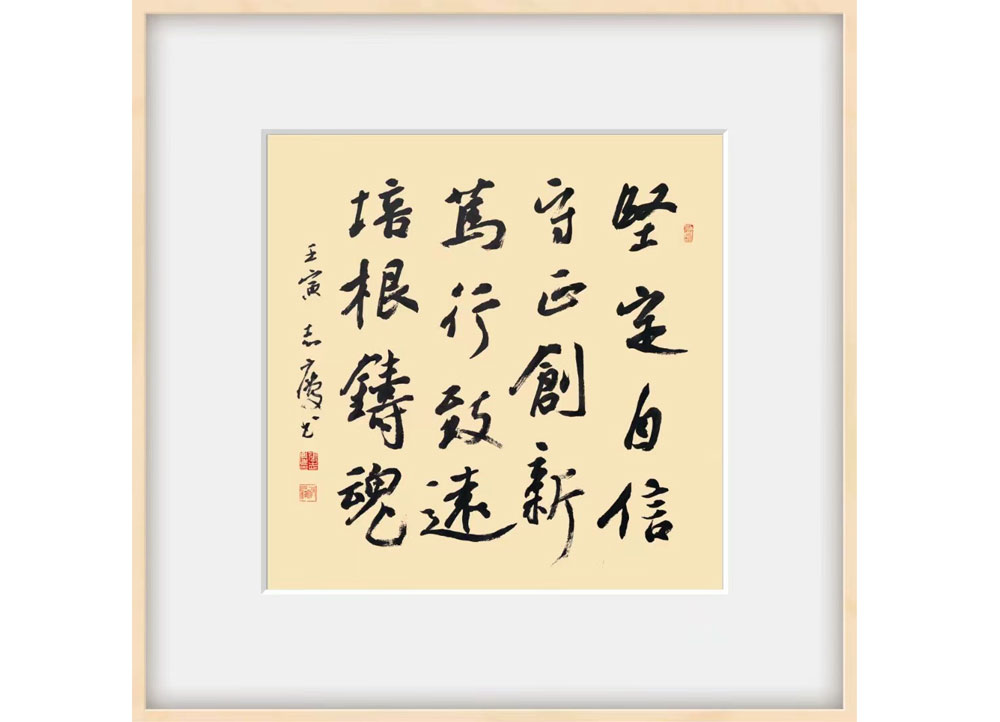 堅定自信
守正創新
篤行致遠
培根鑄魂
壬寅 志慶书